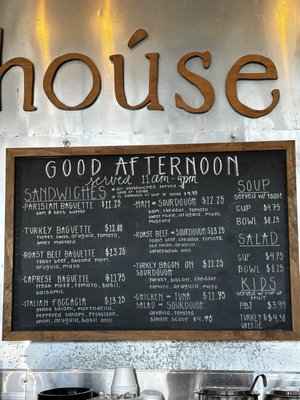 hoúse
GOOD AFTERNOON
served 11am-4pm
SANDWICHES
all sandwiches served
soup or salad
$4.95
PARISIAN BAGUETTE $11.25
ham & herb butter
TURKEY BAGUETTE $12.00
turkey, swiss, arugula, tomato,
mustard
ROAST BEEF BAGUETTE $13.25
roast beef,
arugula, mayo
CAPRESE BAGUETTE $11.75
fresh mozz, tomato, basil,
balsamic
ITALIAN FOCCACIA $13.25
genoa salami, mortadella,
soprese salami, provolone,
onion, arugula, basil aioli
HAM ON SOURDOUGH $12.25
ham, cheddar, tomato,
arugula, mayo,
ROAST BEEF ON SOURDOUGH $13.25
roast beef, cheddar, tomato,
red onion, arugula,
TURKEY BACON ON $12.25
SOURDOUGH
turkey, bacon, cheddar,
tomato, arugula, mayo
CHICKEN OR TUNA $11.95
SALAD ON SOURDOUGH
arugula, tomato
single scoop $4.95
SOUP
served w/ toast
CUP $4.75
BOWL $8.25
SALAD
CUP $4.75
BOWL $8.25
KIDS
served w/ cup of
fruit
PBJ $3.99
TURKEY & $4.50
CHEESE